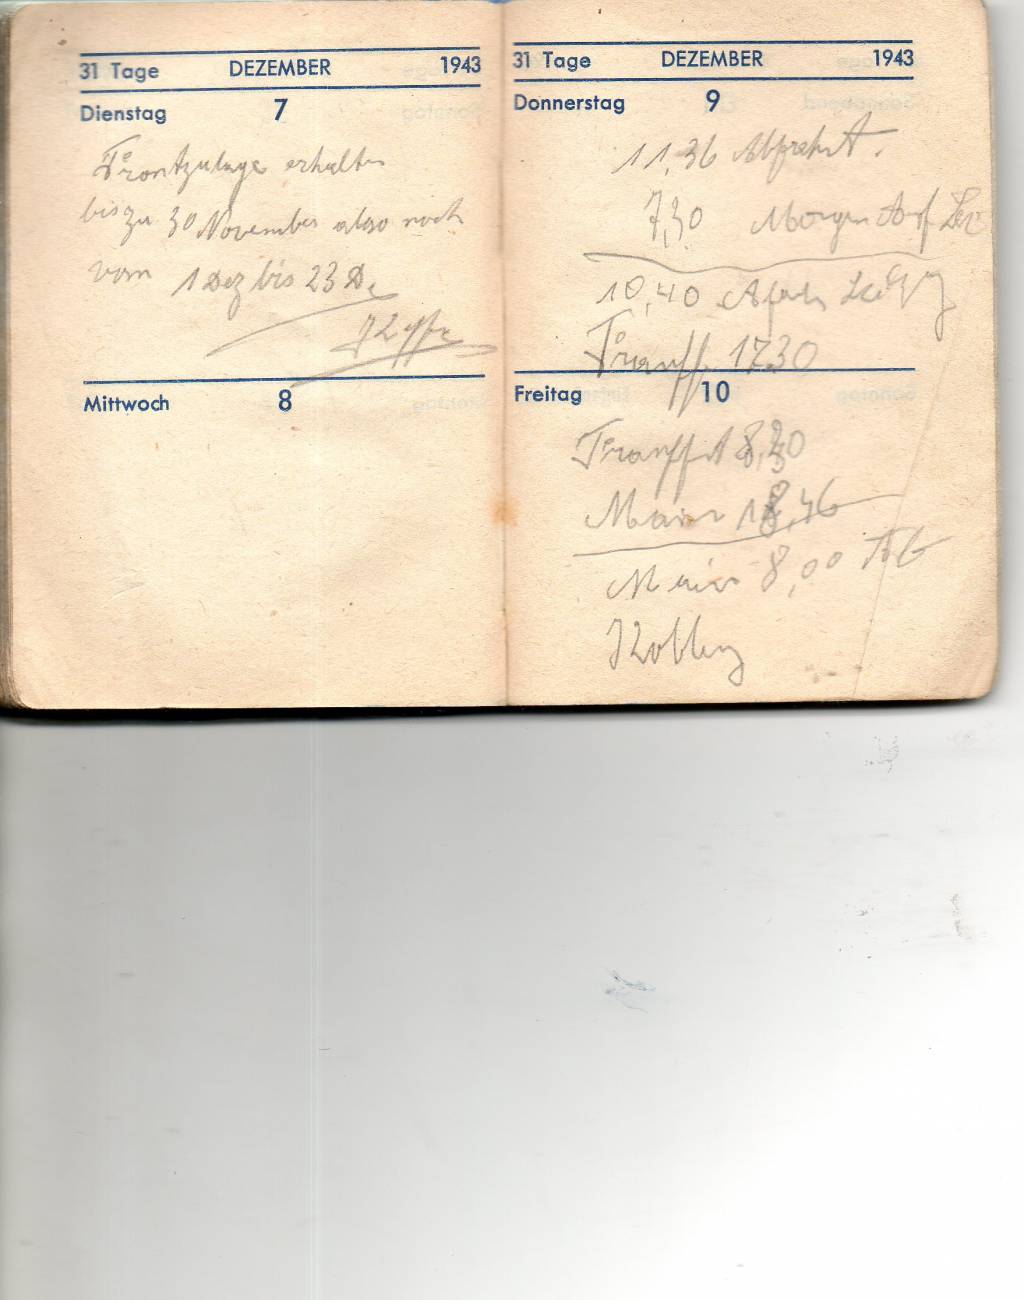 31 Tage DEZEMBER 1943
Dienstag 7
Frontzulage erhalten
bis zu 30 November also noch
vom 1 Dez bis 23 D.
Mittwoch 8
31 Tage DEZEMBER 1943
Donnerstag 9
11,36 Abfahrt.
7,30 Morgen Auf
10,40
17.30
Freitag 10
Frankfurt 8,30
Mainz 18,46
Mainz 8,00 Ab
Koblenz